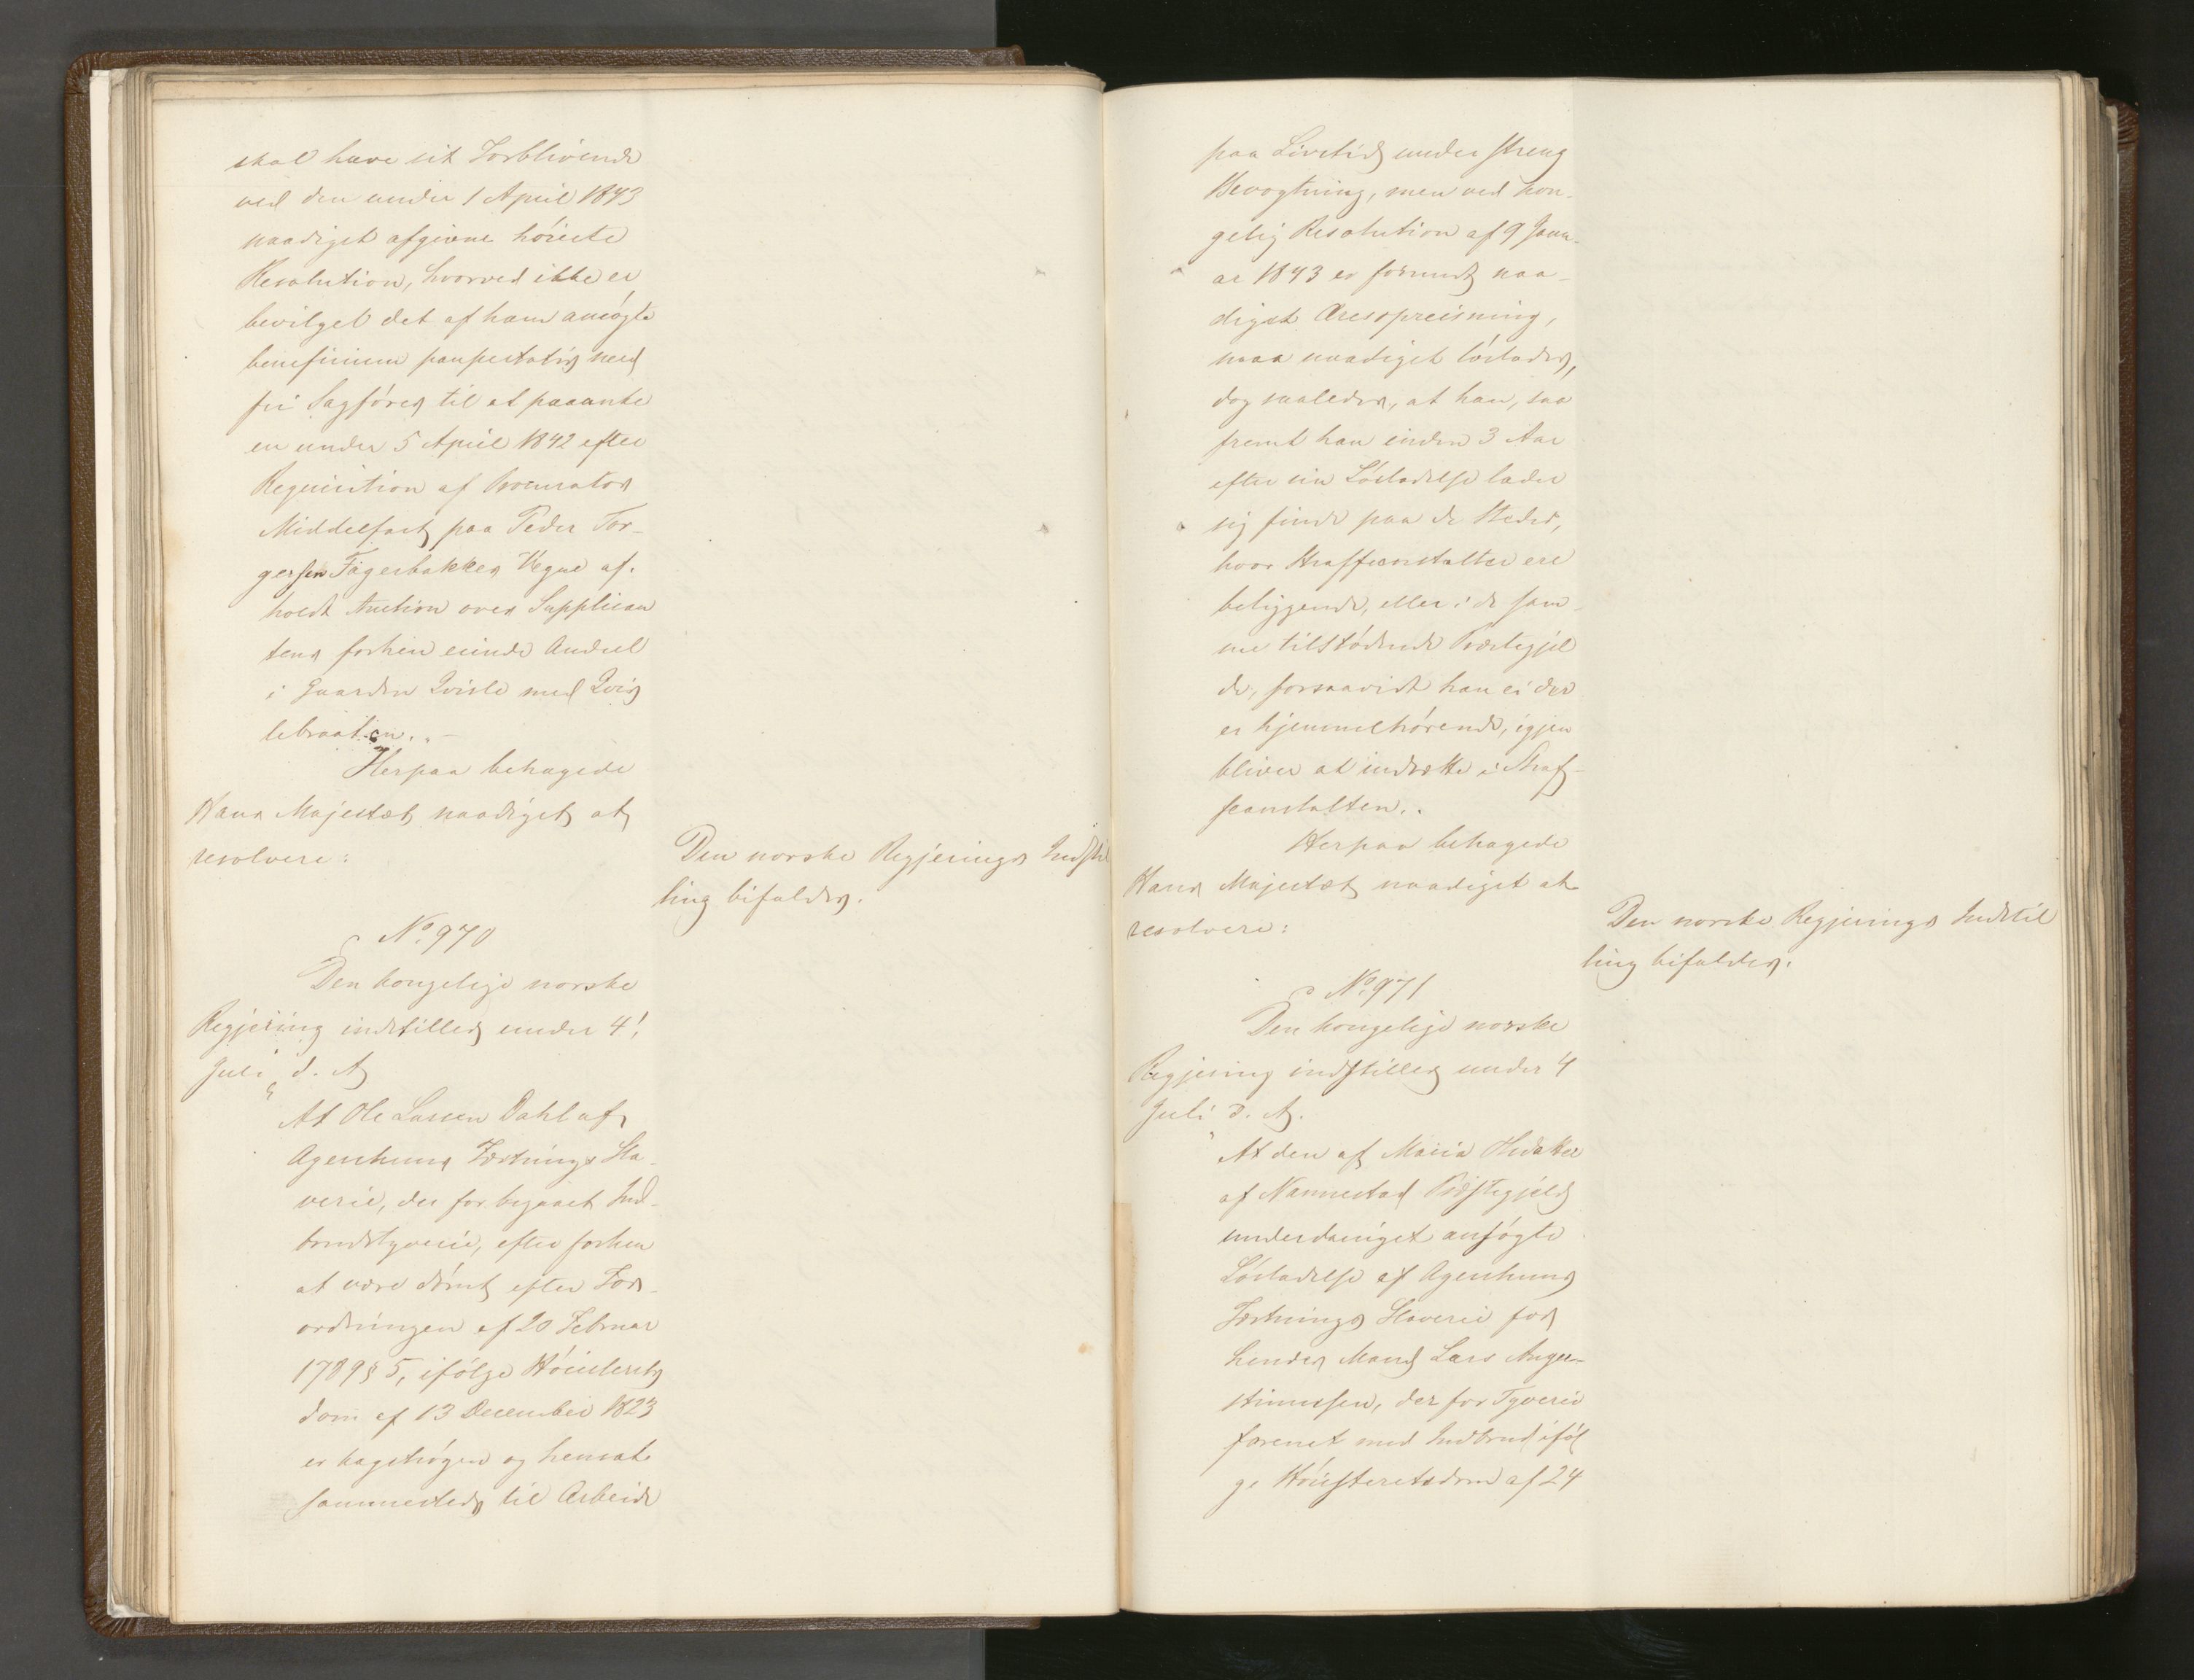 skal have sit Forblivende
ved den under 1 April 1843
naadigst afgivne høieste
Resolution, hvorved ikke er
bevilget det af ham ansøgte
beneficium paupertatis med
fri Sagfører til at paaanke
en under 5 April 1842 efter
Requisition af Procurator
Middelfart paa Peder Tor-
gersen Fagerbakkes Vegne af-
holdt Auction over Supplican
tens forhen eiende Andeel
i Gaarden Qvisle med Qvis
lebraaten.-
Herpaa behagede
Hans Majestæt naadigst at
resolvere:
Den norske Regjerings Indstil
ling bifaldes.
No. 970
Den kongelige norske
Regjering indstiller under 4.
Juli d. A.
At Ole Larsen Dahl af
Agershuus Fæstnings Sla-
verie, der for begaaet Ind-
brudstyverie, efter forhen
at være dømt efter For-
ordningen af 20 Februar
1789 § 5, ifølge Høiesterets
dom af 13 December 1823
er kagstrøgen og hensat
sammesteds til Arbeide
paa Livstid under streng
Bevogtning, men ved kon-
gelig Resolution af 9 Janu-
ar 1843 er forundt naa-
digst Æresopreisning,
maa naadigst løslades,
dog saaledes, at han, saa
fremt han inden 3 Aar
efter sin Løsladelse lader
sig finde paa de Steder,
hvor Straffeanstalter ere
beliggende, eller i de sam-
me tilstødende Præstegjel
de, forsaavidt han ei der
er hjemmehørende, igjen
bliver at indsætte i Straf-
feanstalten.
Herpaa behagede
Hans Majestæt naadigst at
resolvere:
Den norske Regjerings Indstil
ling bifaldes.
No. 971
Den kongelige norske
Regjering indstiller under 4
Juli d. A.
At den af Maria
af Nannestad Præstegjeld
underdanigst ansøgte
Løsladelse af Agershuus
Fæstnings Slaverie for
hendes Mand Lars Anger-
stinussen, der for Tyverie
forenet med Indbrud iføl
ge Høiesteretsdom af 24